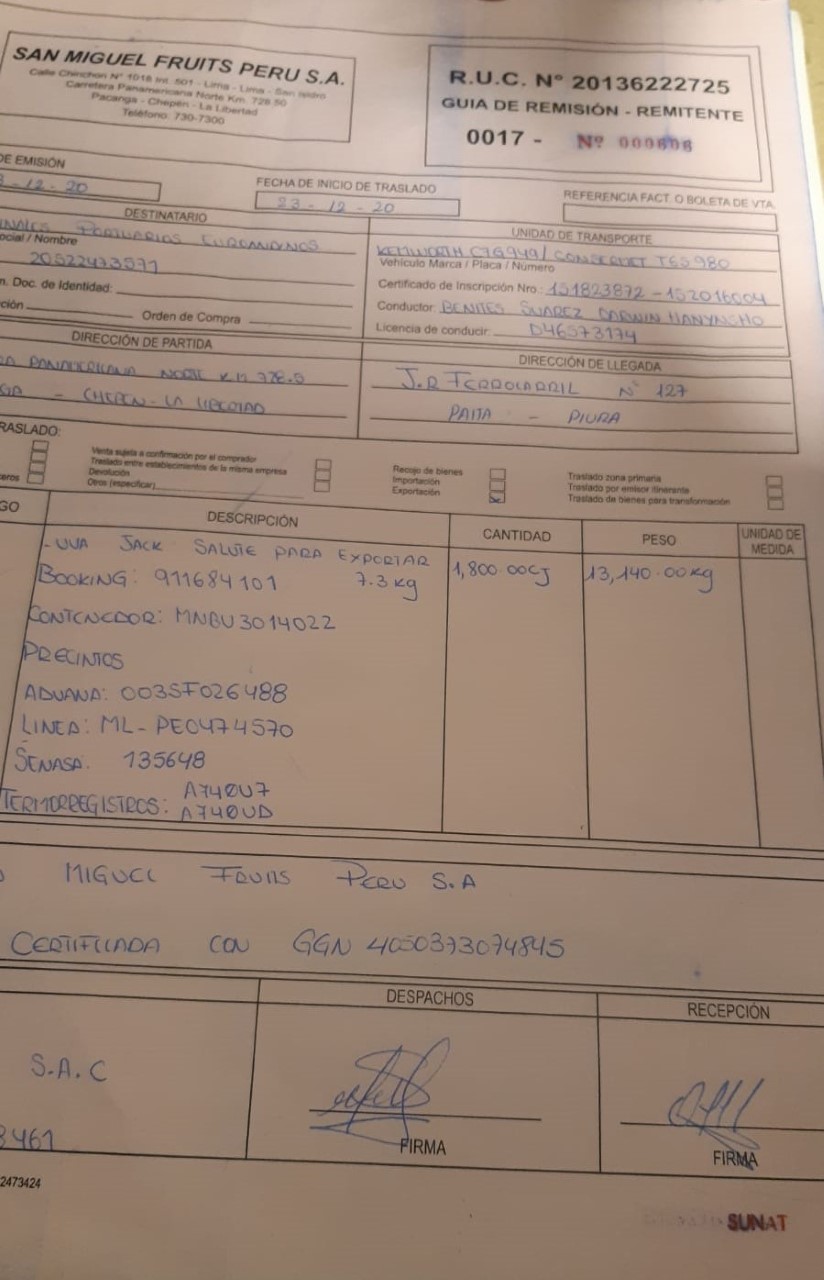 SAN MIGUEL FRUITS PERU S.A.
Calle Chinchon N° 1018 Int. 501 - Lima - Lima - San Isidro
Carretera Panamericana Norte Km. 728.50
Pacanga - Chepén - La Libertad
Teléfono: 730-7300
R.U.C. N° 20136222725
GUIA DE REMISIÓN - REMITENTE
0017 - Nº 000808
DE EMISIÓN
-12-20
FECHA DE INICIO DE TRASLADO
23-12-20
REFERENCIA FACT. O BOLETA DE VTA.
DESTINATARIO
PORTUARIOS EUROANDINOS
ocial / Nombre
20522473571
n. Doc. de Identidad:
ción
Orden de Compra
UNIDAD DE TRANSPORTE
KENWORTH C7G949/ TES980
Vehículo Marca / Placa / Número
Certificado de Inscripción Nro.: 151823872 - 152016004
Conductor: BENITES SUAREZ DARWIN
Licencia de conducir: D46573174
DIRECCIÓN DE PARTIDA
RA PANAMERICANA NORTE KM 728.5
GA - CHEPEN - LA LIBERTAD
DIRECCIÓN DE LLEGADA
J.R FERROCARRIL N° 127
PAITA - PIURA
RASLADO:
Venta sujeta a confirmación por el comprador
Traslado entre establecimientos de la misma empresa
Devolución
Otros (especificar)
ceros
Recojo de bienes
Importación
Exportación
Traslado zona primaria
Traslado por emisor itinerante
Traslado de bienes para transformación
GO
DESCRIPCIÓN
CANTIDAD
PESO
UNIDAD DE MEDIDA
-UVA JACK SALUTE PARA EXPORTAR
BOOKING: 911684101 7.3 kg
1,800.00CJ
13,140.00kg
CONTENEDOR: MNBU3014022
PRECINTOS
ADUANA: 0035F026488
LINEA: ML-PE0474570
SENASA: 135648
TERMORREGISTROS: A740U7
A740UD
MIGUEL FRUITS PERU S.A
CERTIFICADA CON GGN 4050373074845
DESPACHOS
RECEPCIÓN
S.A.C
3461
FIRMA
FIRMA
2473424
SUNAT